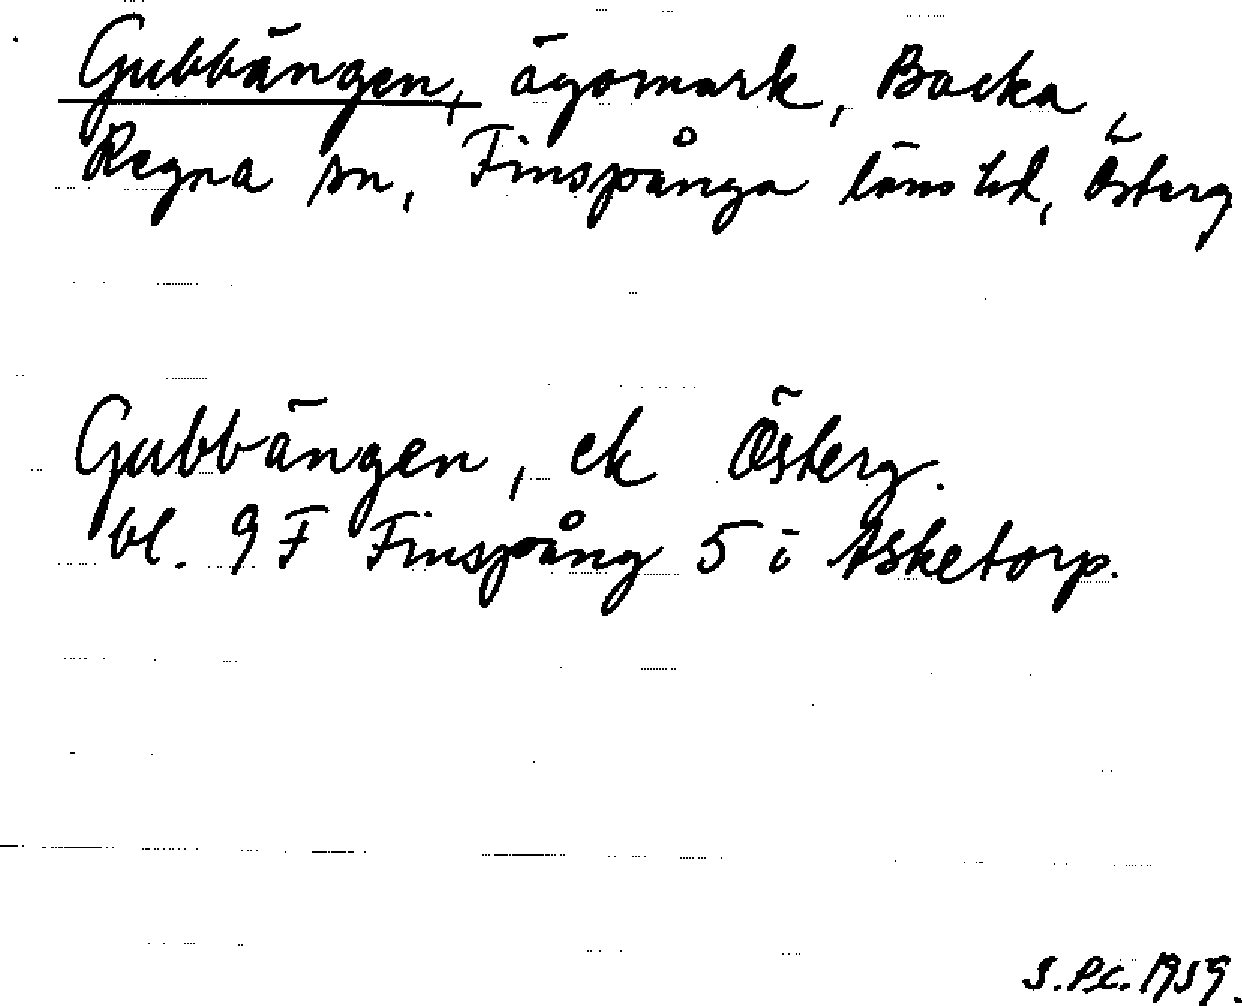 Gubbängen, ägomark, Backa,
Regna sn, Finspånga läns hd, Österg
Gubbängen, ek Österg.
bl. 9 F Finspång 5 i Asketorp.
S.P.C. 1959.